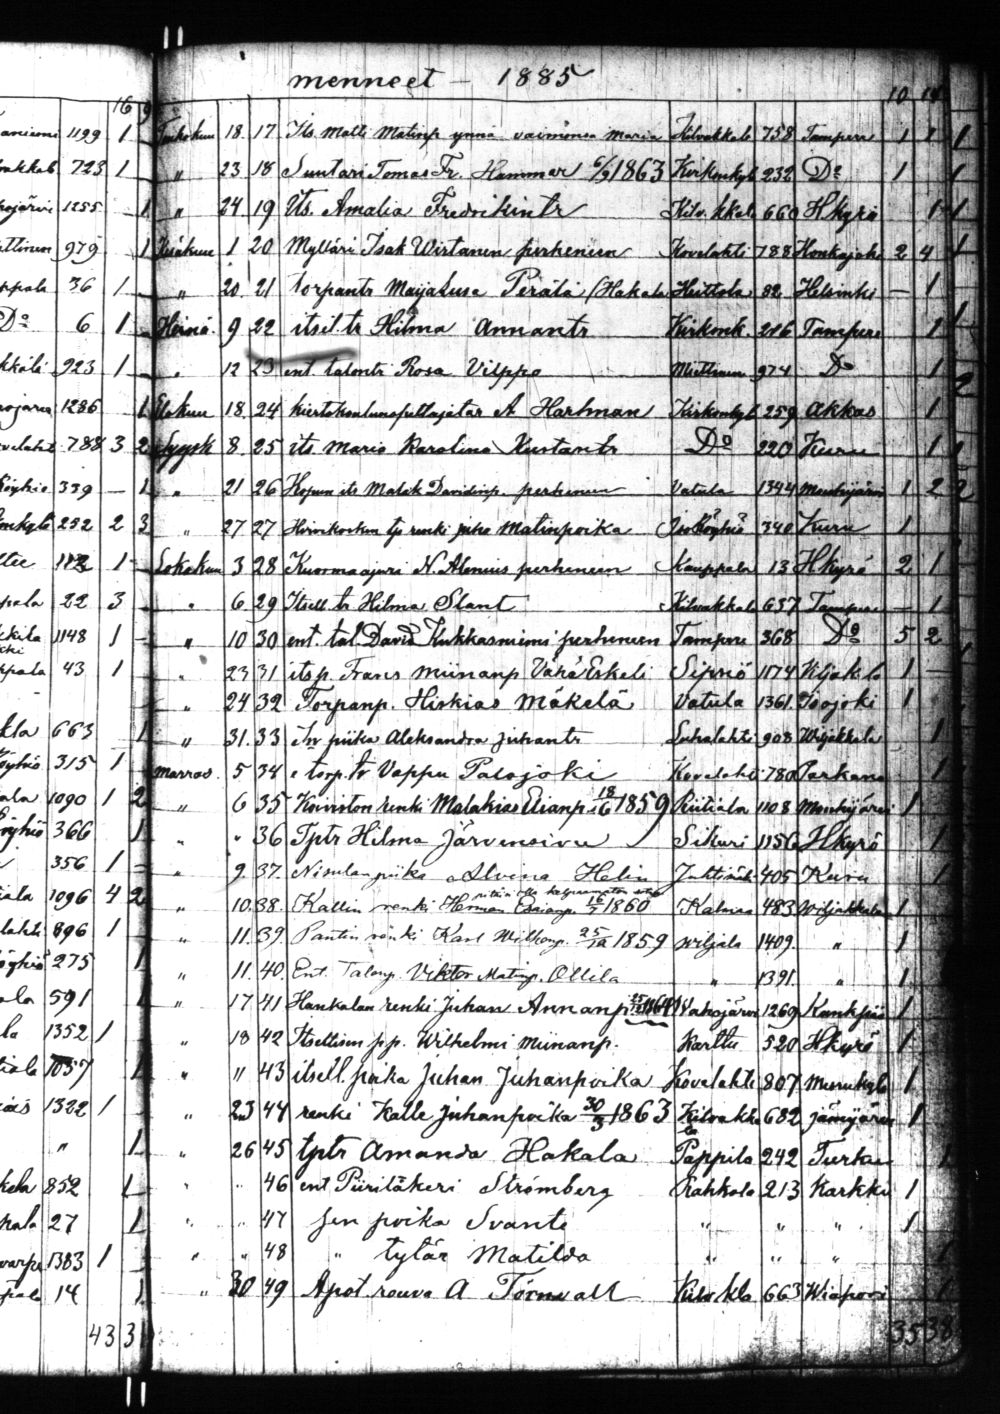 menneet – 1885
16 9
10 14
1199 1
Toukokuu 18. 17. Its. Matti Matinp. ynnä vaimonsa Maria Kilvakkala 758 Tampere 1 1
723 1
" 23 18 Suutari Tomas Fr. Hammar 6/9 1863 Kirkonkyl 232 Do 1
1255 1
" 24 19 Its. Amalia Fredrikintr Kilv.kkala 660 Hkyrö 1
979 1
Kesäkuu 1 20 Mylläri Isak Wirtanen perheneen Kovelahti 788 Honkajoki 2 4
36 1
" 20. 21 torpantr Maijalusa Perälä (Hakala Heittola 82 Helsinki – 1
Do 6 1
Heinä. 9 22 itsll.tr Hilma Annantr Kirkonk. 216 Tampere 1
923 1
" 12 23 ent. talontr Rosa Vilppo Miettinen 974 Do 1
1286 1
Elokuu 18. 24 kiertokoulunopettajatar A Hartman Kirkonkyl 259 Akkas 1
788 3 2
Syysk 8. 25 its. Maria Karolina Kustantr Do 220 Kuru 1
339 – 1
" 21 26 its Malak Davidinp. perheneen Vatula 1344 Mouhijärvi 1 2
252 2 3
" 27 27 renki Juho Matinpoika IsoRöyhiö 340 Kuru 1
112 1
Lokakuu 3 28 Kuormaajuri N. Alenius perheneen Kauppala 13 Hkyrö 2 1
22 3
" 6 29 Itsell.tr Hilma Slant Kilvakkala 637 Tampere – 1
1148 1
" 10 30 ent. tal. David Kukkasniemi perheneen Tampere 368 Do 5 2
43 1
" 23 31 itsp. Frans Miinanp VähäEskeli Sipsiö 1174 Viljakla 1
" 24 32 Torpanp. Hiskias Mäkelä Vatula 1361. Isojoki 1
663 1
" 31. 33 piika Aleksandra Juhantr Luhalahti 908 Wiljakkala 1
315 1
Marras. 5 34 e torp.tr Vappu Palojoki Kovelahti 780 Parkano 1
1090 1 2
" 6 35 Koiviston renki Malakias Elianp. 18/6 1859 Riitiala 1108 Mouhijärvi 1
366 1
" " 36 Tptr Hilma Järvensivu Sikuri 1156 Hkyrö 1
356 1
" 9 37. Nisulan piika Alvina Helin Juhtimäki 405 Kuru 1
1096 4 2
" 10. 38. Kallin renki Herman Esaianp. 16/7 1860 Kalmaa 483 Wiljakkala 1
896 1
" 11. 39. Pantin renki Karl Wilhonp. 25/12 1859 Wiljala 1409. " 1
275 1
" 11. 40. Ent. Talonp. Viktor Matinp. Ollila " 1391. " 1
591 1
" 17 41 Hankalan renki Juhan Annanp. Vahojärvi 1269 Kankpää 1
1352 1
" 18 42 Itsellisen pp. Wilhelmi Miinanp. Karttu 520 Hkyrö 1
1037 1
" " 43 itsell. poika Juhan Juhanpoika Kovelahti 807 1
1322 1
" 23 44 renki Kalle Juhanpoika 30/3 1863 Kilvakkla 682 Jämijärvi 1
" 1
" 26 45 tptr Amanda Hakala Pappila 242 Turkuu 1
852 1
" " 46 ent Piiritäkeri Strömberg Rahkola 213 Karkku 1
27 1
" " 47 Sen poika Svante " " " 1
1383 1
" " 48 " tytär Matilda " " " 1
14 1
" 30 49 Apot rouva A Törnvall Kilvkla 663 Wiapori 1
43 3
35 38